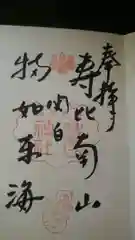 奉拝
寿比南山
関白
福如東海